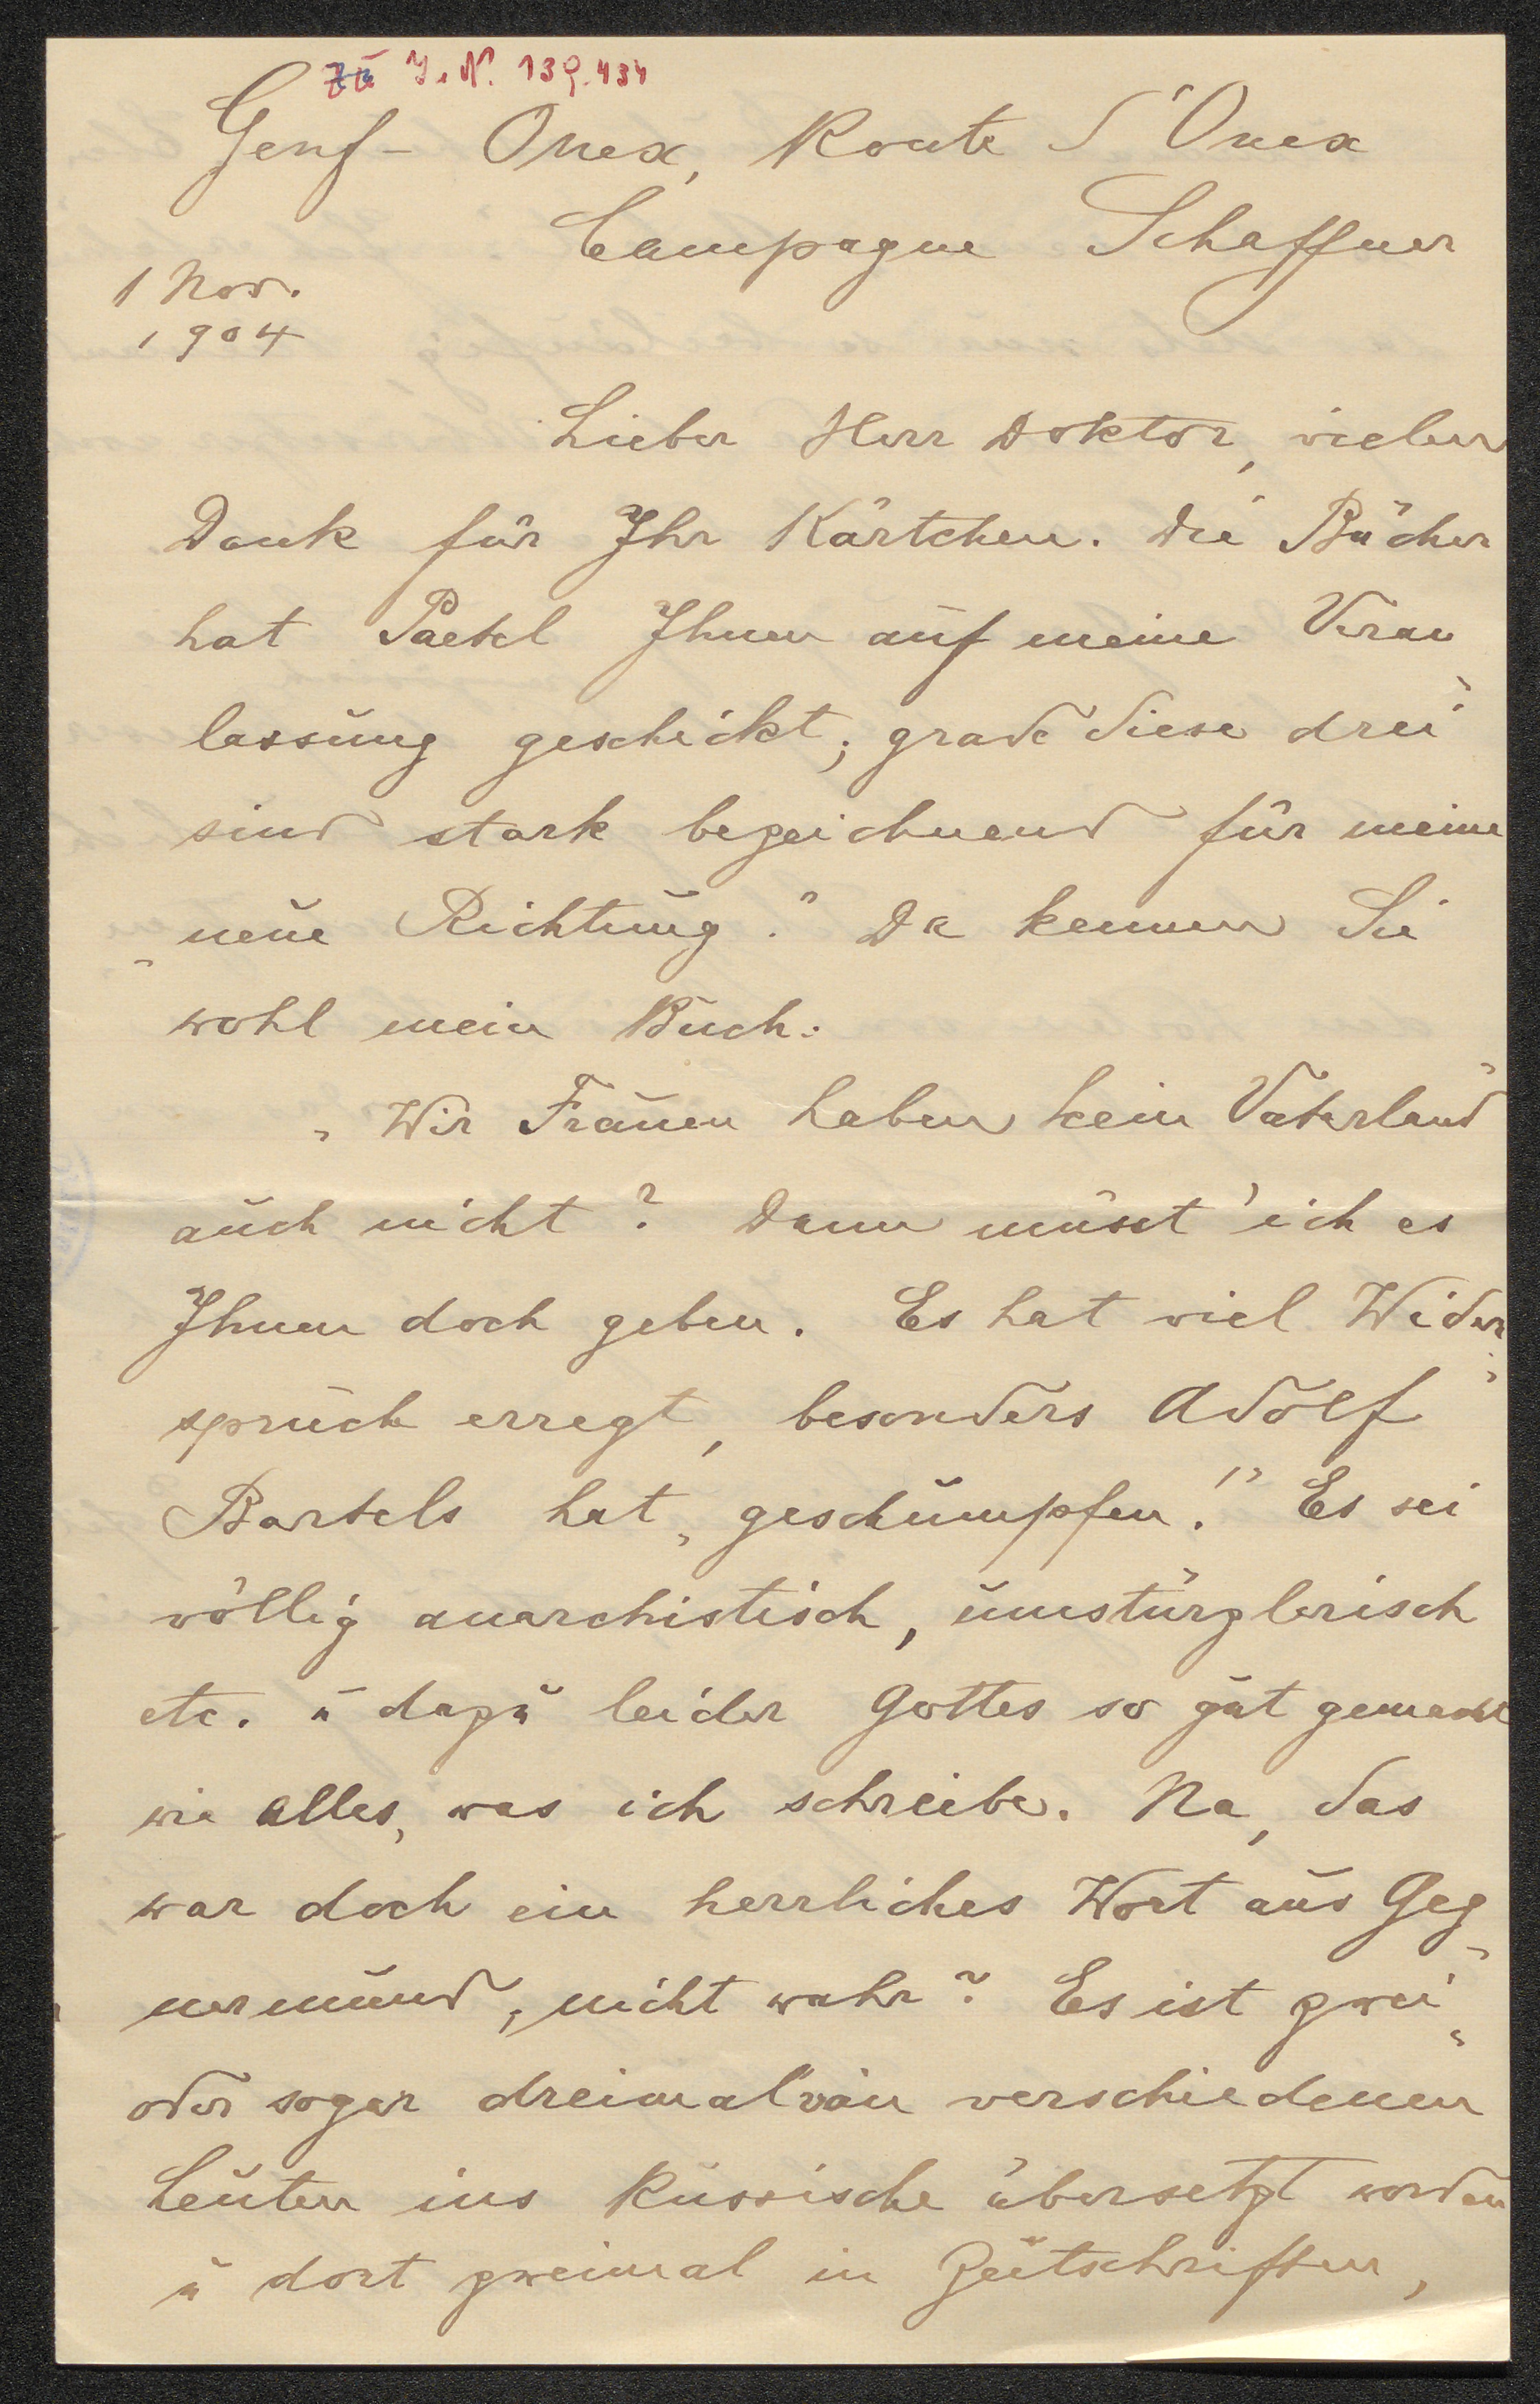 zu I. N. 139.434
Genf - Onex, Route d'Onex
Campagne Schaffner
1 Nov.
1904
Lieber Herr Doktor, vielen
Dank für Ihr Kärtchen. Die Bücher
hat Paetel Ihnen auf meine Veran
lassung geschickt; grade diese drei
sind stark bezeichnend für meine
„neue Richtung." Da kennen Sie
wohl mein Buch:
„Wir Frauen haben kein Vaterland"
auch nicht? Dann müsst' ich es
Ihnen doch geben. Es hat viel Wider-
spruch erregt, besonders Adolf
Bartels hat „geschumpfen!" Es sei
völlig anarchistisch, umstürzlerisch
etc. u dazu leider Gottes so gut gemacht
wie alles, was ich schreibe. Na, das
war doch ein herrliches Wort aus Geg-
nermund, nicht wahr? Es ist zwei-
oder sogar dreimal von verschiedenen
Leuten ins Russische übersetzt worden
u dort zweimal in Zeitschriften,